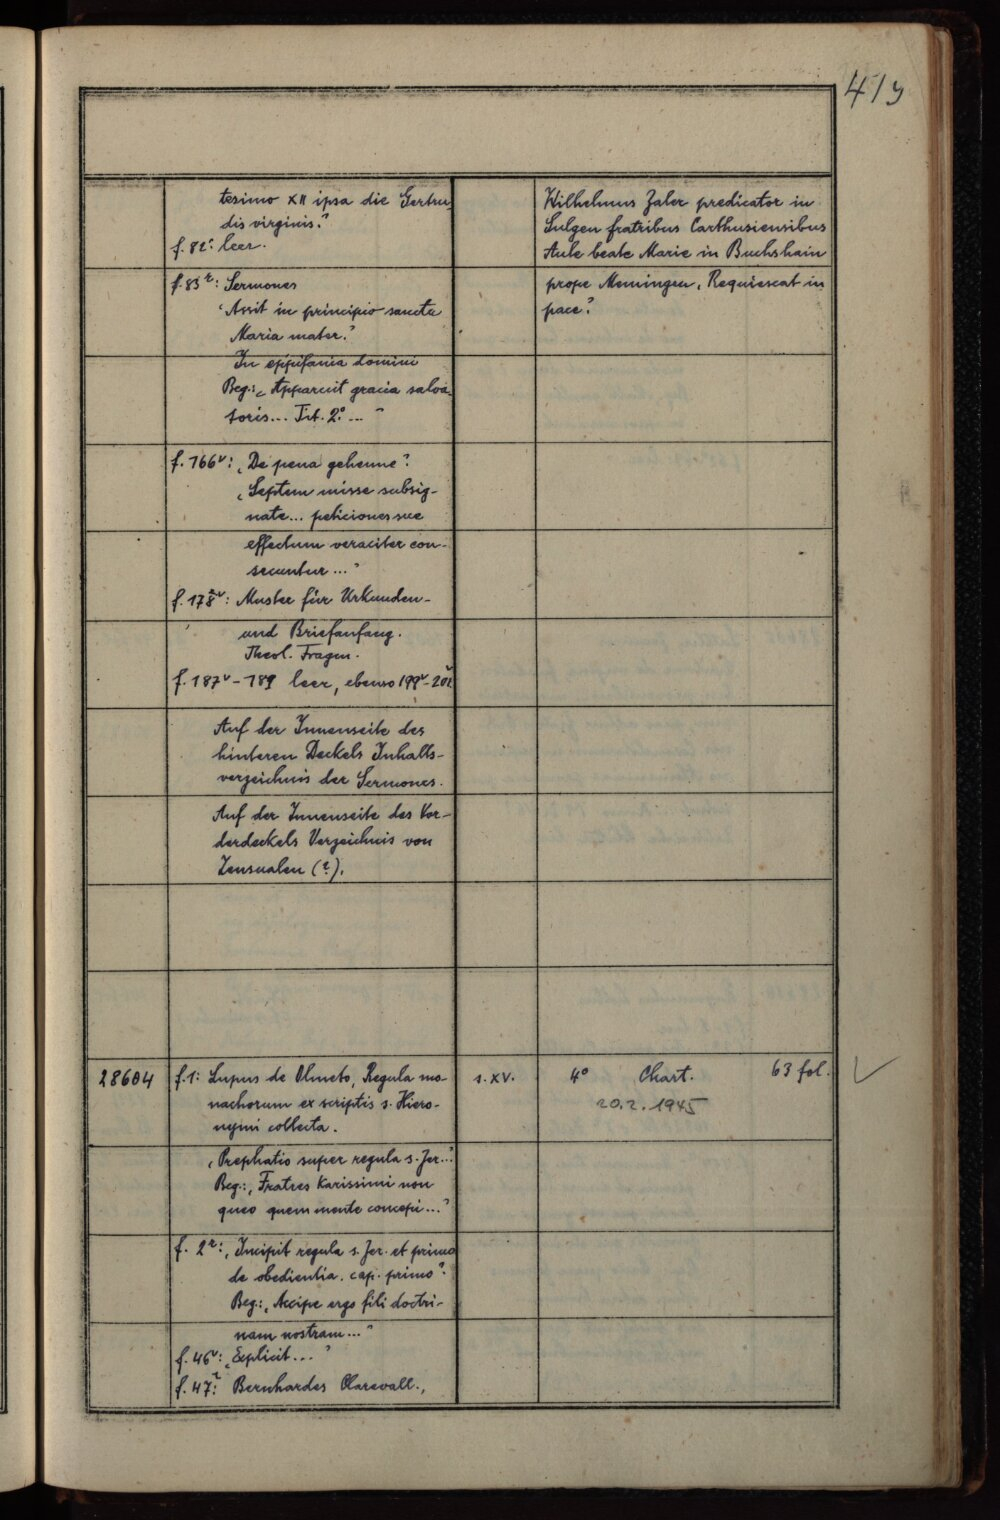 419
tesimo XII ipsa die Gertru-
dis virginis."
f. 82r: leer.
f. 83r: Sermones
"Assit in principio sancta
Maria mater."
In epyfania domini
Beg.: "Apparuit gracia salva-
toris... Tit. 2.° ... "
f. 166v: "De pena gehenne".
"Septem misse subsig-
nate... peticiones sue
effectum veraciter con-
secuntur..."
f. 178v: Muster für Urkunden-
und Briefanfang.
Theol. Fragen.
f. 187v - 189 leer, ebenso 199v - 201v
Auf der Innenseite des
hinteren Deckels Inhalts-
verzeichnis der Sermones.
Auf der Innenseite des Vor-
derdeckels Verzeichnis von
Zensualen (?).
Wilhelmus Zaler predicator in
Sulgen fratribus Carthusiensibus
Aule beate Marie in Buchshain
prope Memingen. Requiescat in
pace."
28604
f. 1: Lupus de Olmeto, Regula mo-
nachorum ex scriptis s. Hiero-
nymi collecta.
"Prephatio super regula s. Jer..."
Beg.: "Fratres karissimi non
queo quem mente concepi..."
f. 2r: "Incipit regula s. Jer. et primo
de obedientia. cap. primo".
Beg.: "Accipe ergo fili doctri-
nam nostram..."
f. 46v: "Explicit..."
f. 47r: Bernhardes Clarevall.,
s. XV.
4° Chart. 63 fol.
20.2.1945